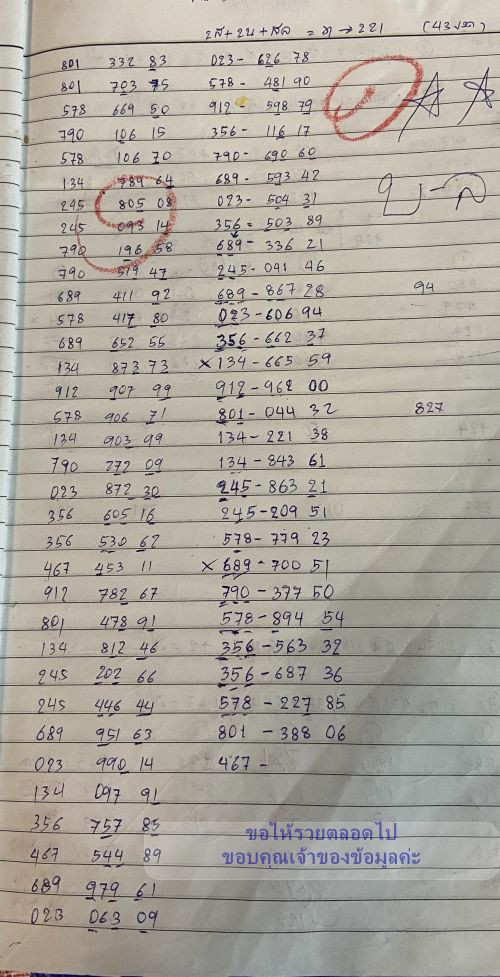 2ส+2น+สล = ท → 221 (43งวด)
801 332 83 023- 626 78
801 703 75 578- 481 90
578 669 50 912- 598 79
790 106 15 356- 116 17
578 106 70 790- 690 60
134 789 64 689- 593 42
245 805 08 023- 504 31
245 093 14 356- 503 89
790 196 58 689- 336 21
790 519 47 245- 041 46
689 411 92 689-867 28 94
578 417 80 023-606 94
689 652 55 356-662 37
134 873 73 ×134-665 59
912 907 99 912-962 00
578 906 71 801-044 32 827
134 903 99 134-221 38
790 272 09 134-843 61
023 872 30 245-863 21
356 605 16 245-209 51
356 530 62 578-779 23
467 453 11 ×689-700 51
912 782 67 790-377 50
801 478 91 578-894 54
134 812 46 356-563 32
245 202 66 356-687 36
245 446 44 578-227 85
689 951 63 801-388 06
023 990 14 467-
134 097 91
356 757 85
467 544 89
689 979 61
023 063 09
บ-ล
ขอให้รวยตลอดไป
ขอบคุณเจ้าของข้อมูลค่ะ